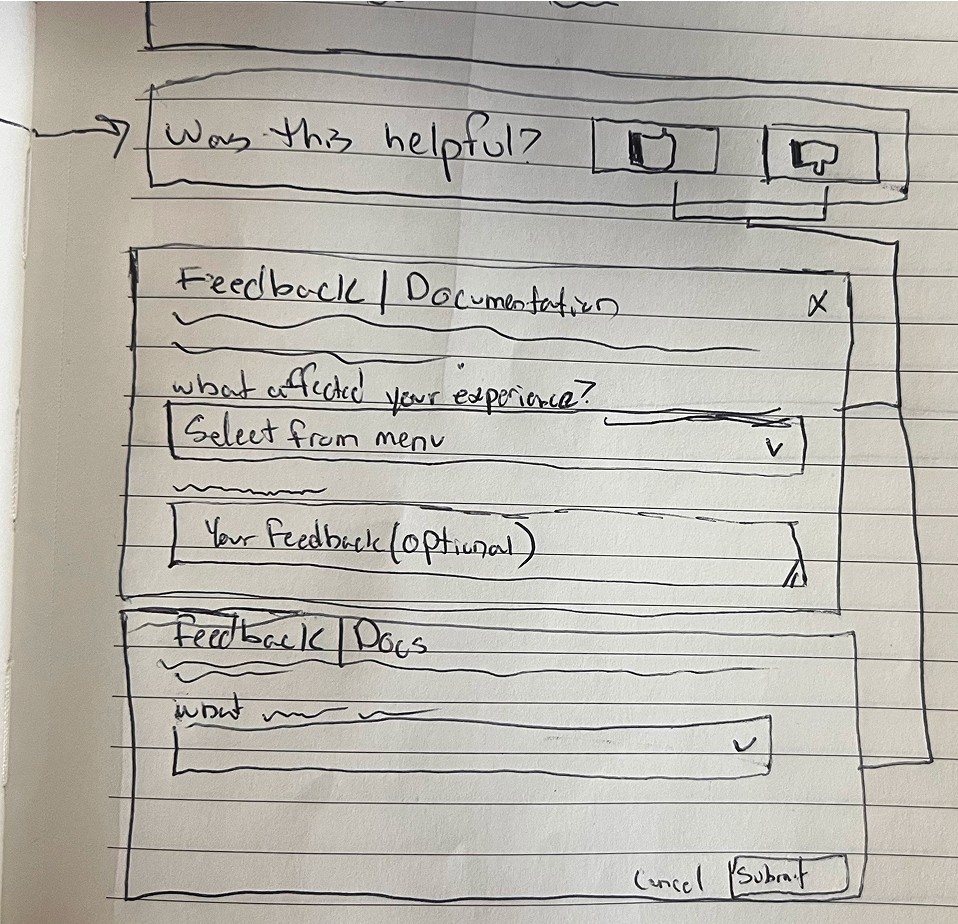 Was this helpful?
Feedback | Documentation X
What affected your experience?
Select from menu
Your Feedback (optional)
Feedback | Docs
What
Cancel Submit